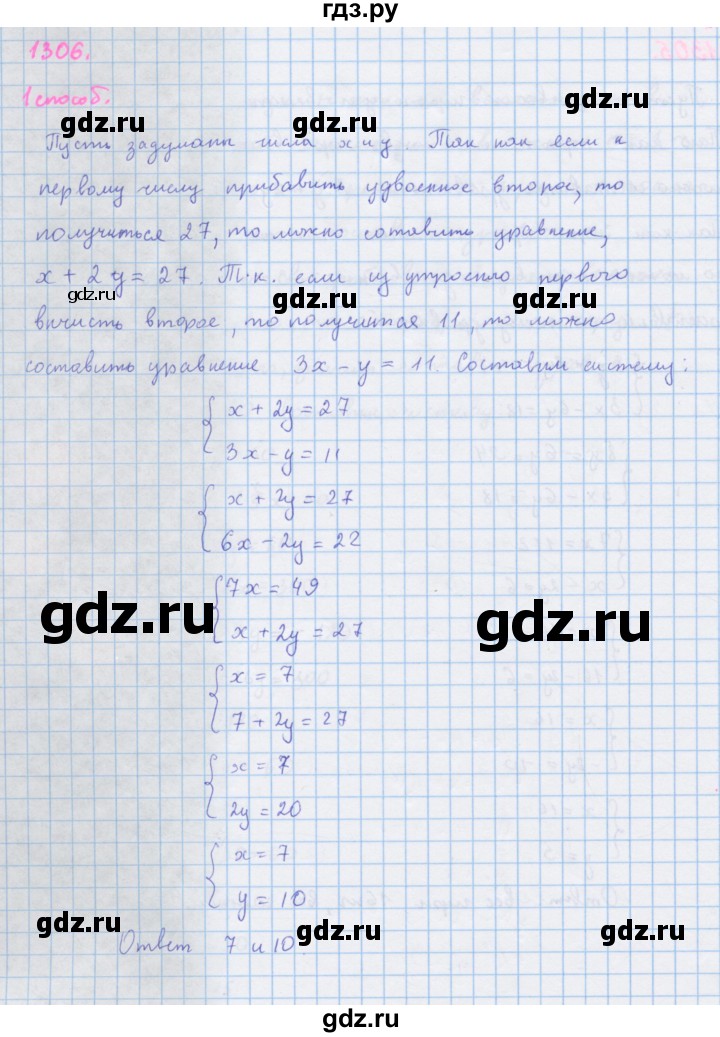 гдз.ру
1306.
1 способ.
gdz.ru gdz.ru
Пусть задуманы числа x и y. Так как если к
первому числу прибавить удвоенное второе, то
получиться 27, то можно сотавить уравнение,
x + 2y = 27. Т.к. если из утроенно первого
gdz.ru gdz.ru
вичисть второе, то получитая 11, то можно
составить уравнение 3x - y = 11. Составим систему:
x + 2y = 27
3x - y = 11
x + 2y = 27
6x - 2y = 22
7x = 49
gdz.ru gdz.ru
x + 2y = 27
x = 7
7 + 2y = 27
x = 7
2y = 20
x = 7
y = 10
gdz.ru gdz.ru
Ответ 7 и 10.
gdz.ru